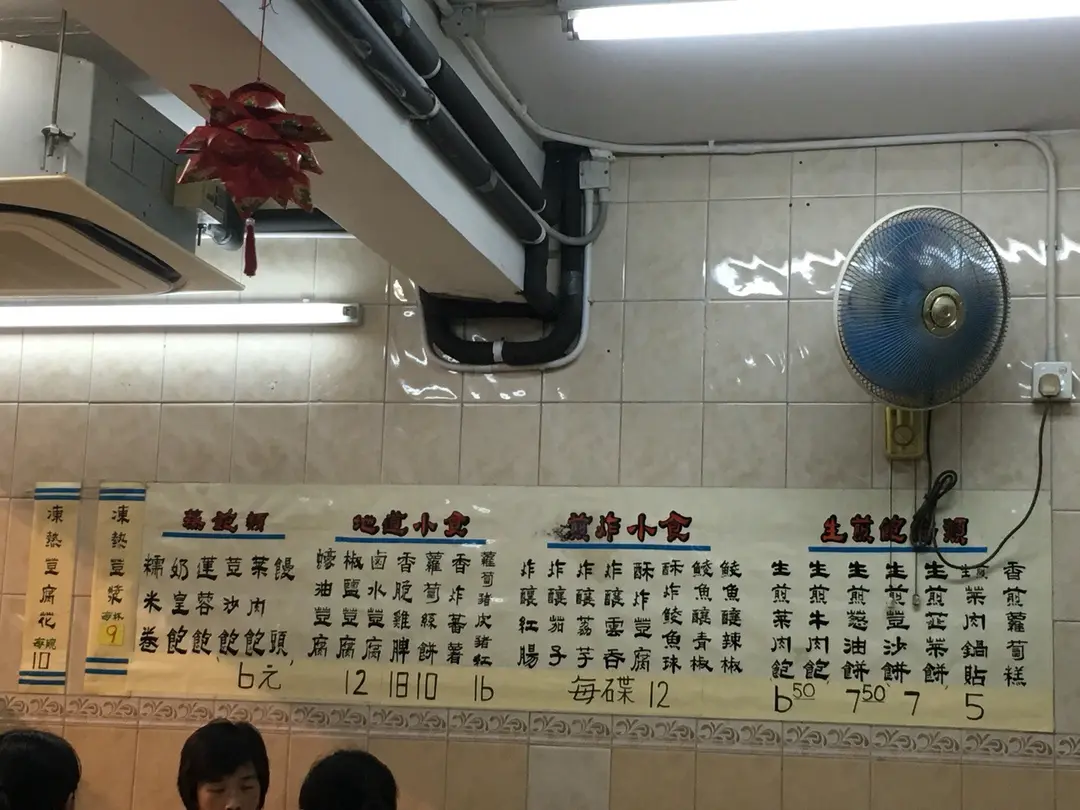 凍熱豆腐花
每碗
10
凍熱豆漿
每杯
9
蒸飽類
糯米卷
奶皇飽
蓮蓉飽
荳沙飽
菜肉飽
饅頭
6元
地道小食
蠔油荳腐
椒鹽荳腐
鹵水荳腐
香脆雞脾
蘿蔔絲餅
香炸蕃薯
蘿蔔豬皮豬紅
12 18 10 16
煎炸小食
炸釀紅腸
炸釀茄子
炸釀荔芋
炸雲吞
酥炸荳腐
酥炸鯪魚球
鯪魚釀青椒
鯪魚釀辣椒
每碟 12
生煎飽類
生煎菜肉飽
生煎牛肉飽
生煎葱油餅
生煎荳沙餅
生煎韮菜餅
生煎菜肉鍋貼
香煎蘿蔔糕
6.50 7.50 7 5